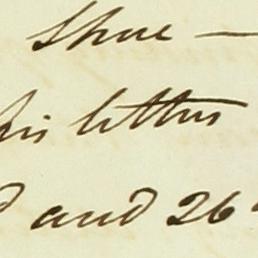 Shue —
his letters
d and 26